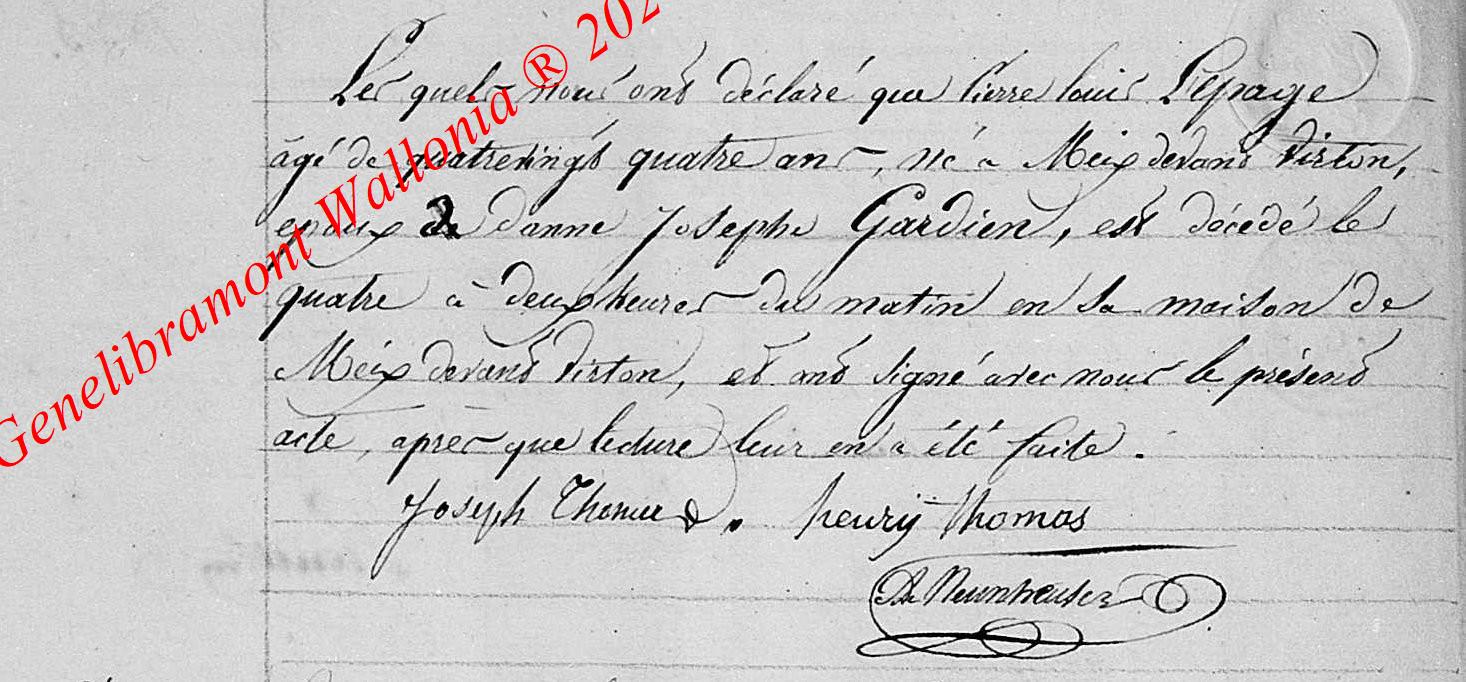 Genelibramont Wallonia ® 202
Les quels nous ont déclaré que Pierre Louis Lepage
âgé de quatrevingt quatre ans, né a Meix devant Virton,
epoux de danne Josephe Gardien, est décédé le
quatre à deux heures du matin en sa maison de
Meix devant Virton, et ont signé avec nous le présent
acte, après que lecture leur en a été faite.
Joseph Thomas. henrÿ thomas